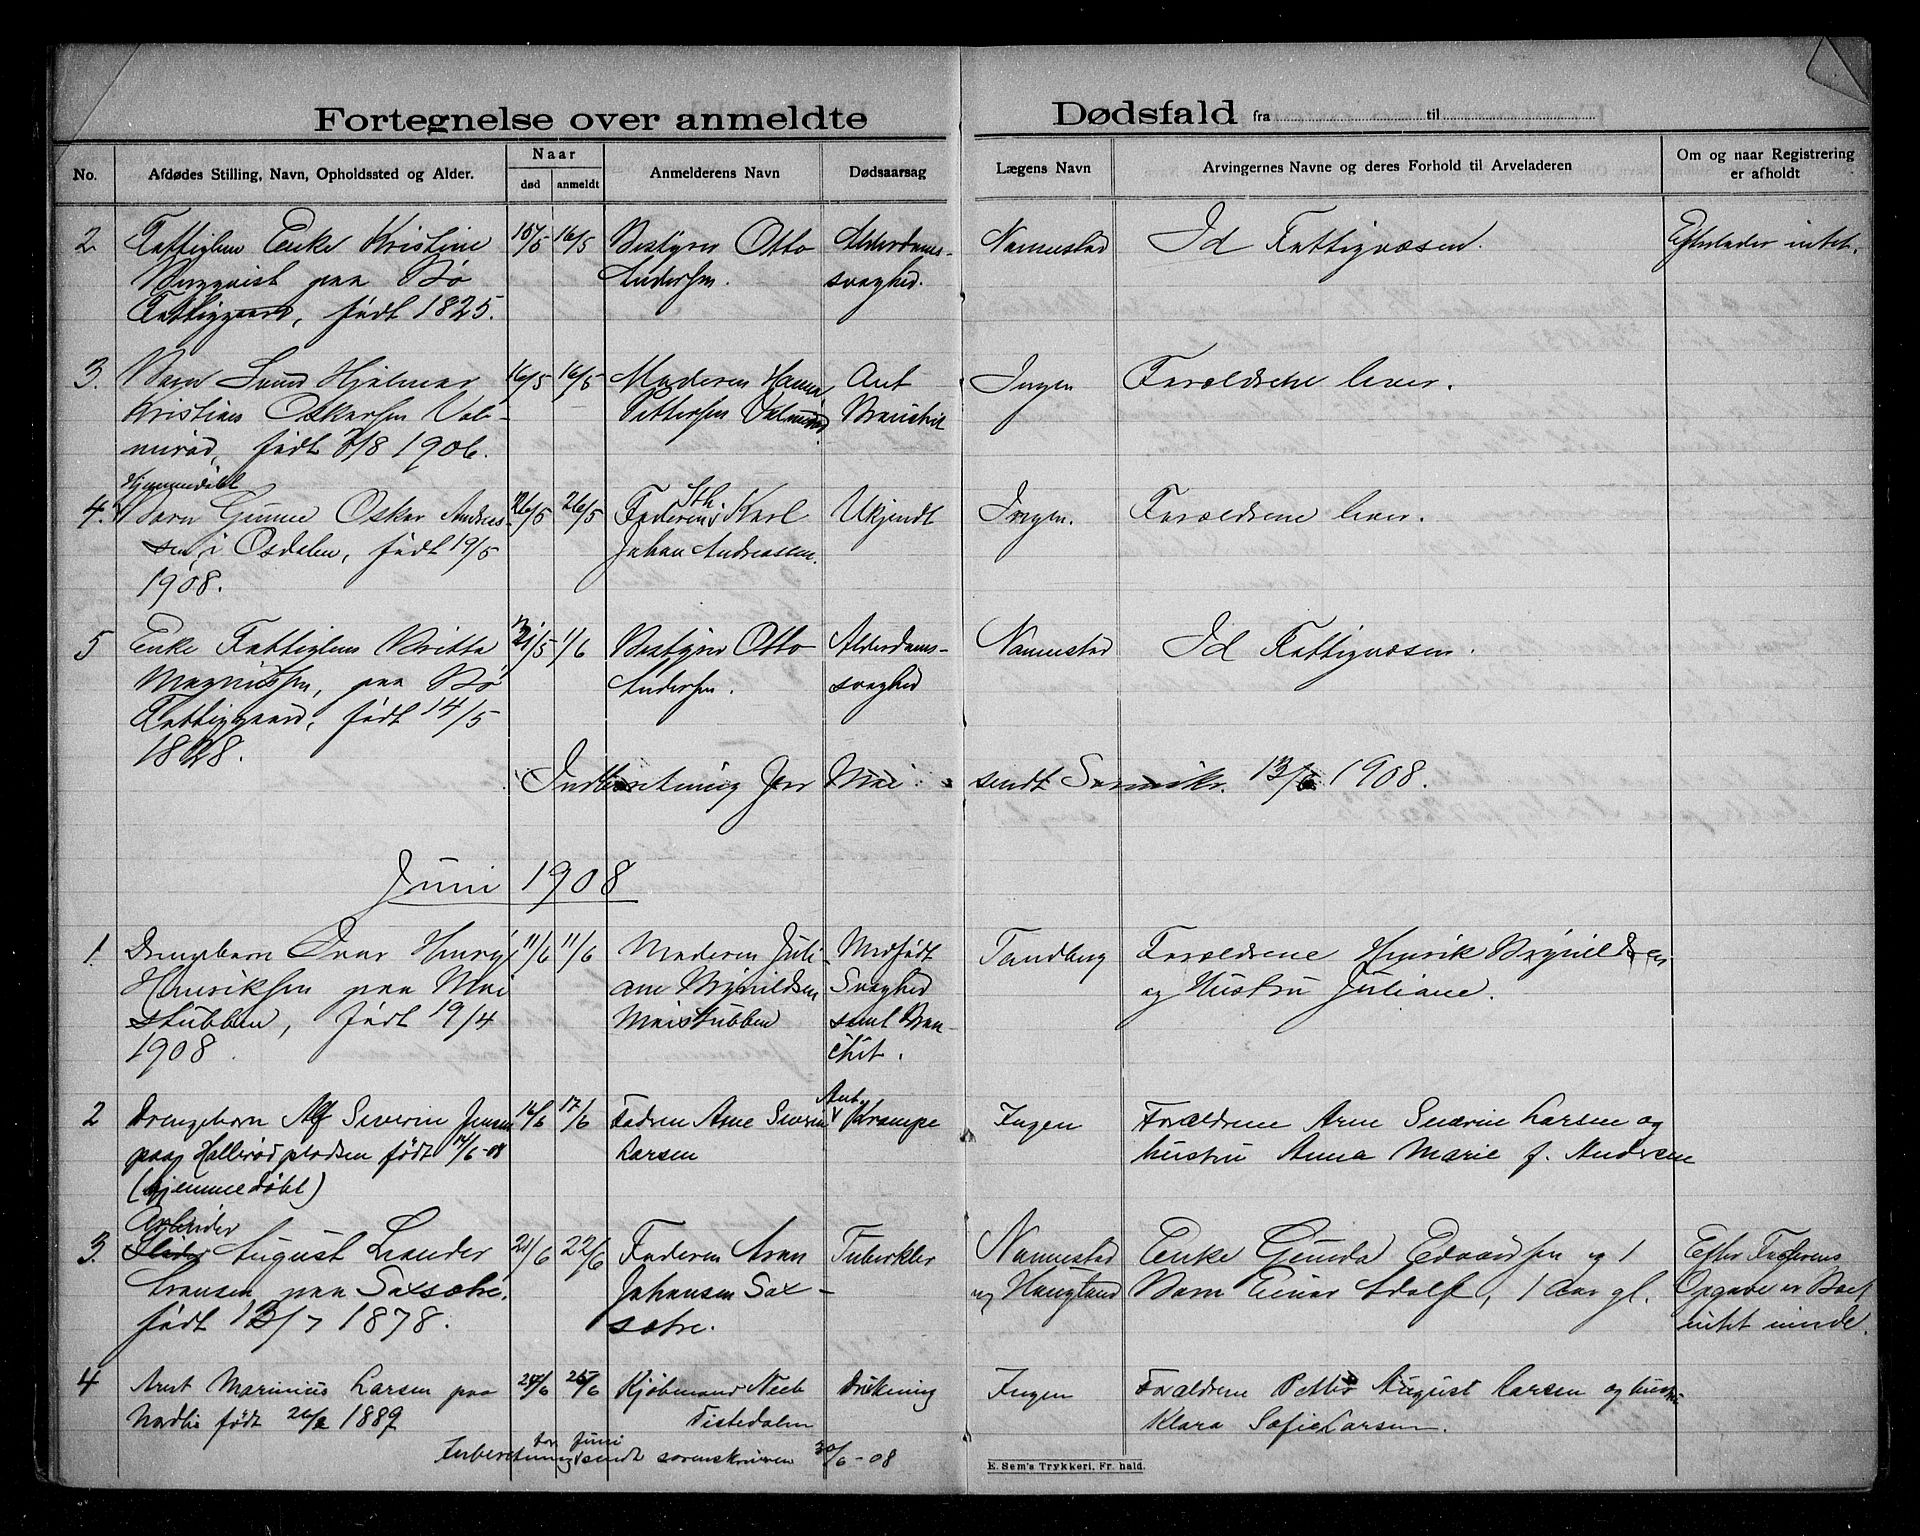 Fortegnelse over anmeldte Dødsfald fra til
No.
Afdødes Stilling, Navn, Opholdssted og Alder.
Naar
død
anmeldt
Anmelderens Navn
Dødsaarsag
Lægens Navn
Arvingernes Navne og deres Forhold til Arveladeren
Om og naar Registrering
er afholdt
2 Fattiglem Enke Kristine
Bergqvist paa Bø
Fattiggaard, født 1825.
15/5
16/5
Bestyrer Otto
Andersen.
Alderdoms-
svaghed.
Nannestad
Id Fattigvæsen.
Efterlader intet.
3. Barn Hjalmar
Kristian Oskarsen Val-
mirød, født 1906.
16/5
16/5
Moderen Hanna
Pettersen
Ant
Bronchit
Ingen
Forældrene lever.
Hjemmedøbt
4. Barn Gunne Oskar Andreas-
sen, i Osdalen, født 19/5
1908.
26/5
26/5
Faderen Sth Karl
Johan Andreassen.
Ukjendt
Ingen.
Forældrene lever.
5 Enke Fattiglem Britta
Magnussen, paa Bø
Fattiggaard, født 14/5
1828.
31/5
1/6
Bestyrer Otto
Andersen.
Alderdoms-
svaghed
Nannestad
Id Fattigvæsen.
Indberetning for Mai sendt Sorenskr. 13/6 1908.
Juni 1908
1. Drengebarn Ivar Henry
Henriksen paa Mai
stubben, født 19/4
1908.
11/6
11/6
Moderen Juli-
ane Brynildsen
Maistubben
Medfødt
Svaghed
samt Bron-
chit.
Tandberg
Forældrene Henrik Brynildsen
og Hustru Juliane.
2 Drengebarn Alf Severin Jensen
paa Hallerødpladsen født 14/6-08
(hjemmedøbt)
16/6
17/6
Fadren Arne Severin
Larsen
Ant.
Krampe
Ingen
Forældrene Arne Severin Larsen og
hustru Anna Marie f. Andersen
Arbeider
3. August Leander
Aronsen paa Saxsætre,
født 13/7 1878.
21/6
22/6
Faderen Aron
Johansen Sax-
sætre.
Tuberkler
Nannestad
og Haugland
Enke Gunda Edvardsen og 1
Barn Einar Adolf, 1 Aar gl.
Efter Faderens
Opgave er Boet
intet inde.
4 Arnt Marinius Larsen paa
Nordli født 1889
24/6
25/6
Kjøbmand Neeb
Tistedalen
Drukning
Ingen
Forældrene Petter August Larsen og hustru
Klara Sofie Larsen.
Inberetning for Juni sendt sorenskriveren 30/6-08
E. Sem's Trykkeri, Fr. hald.